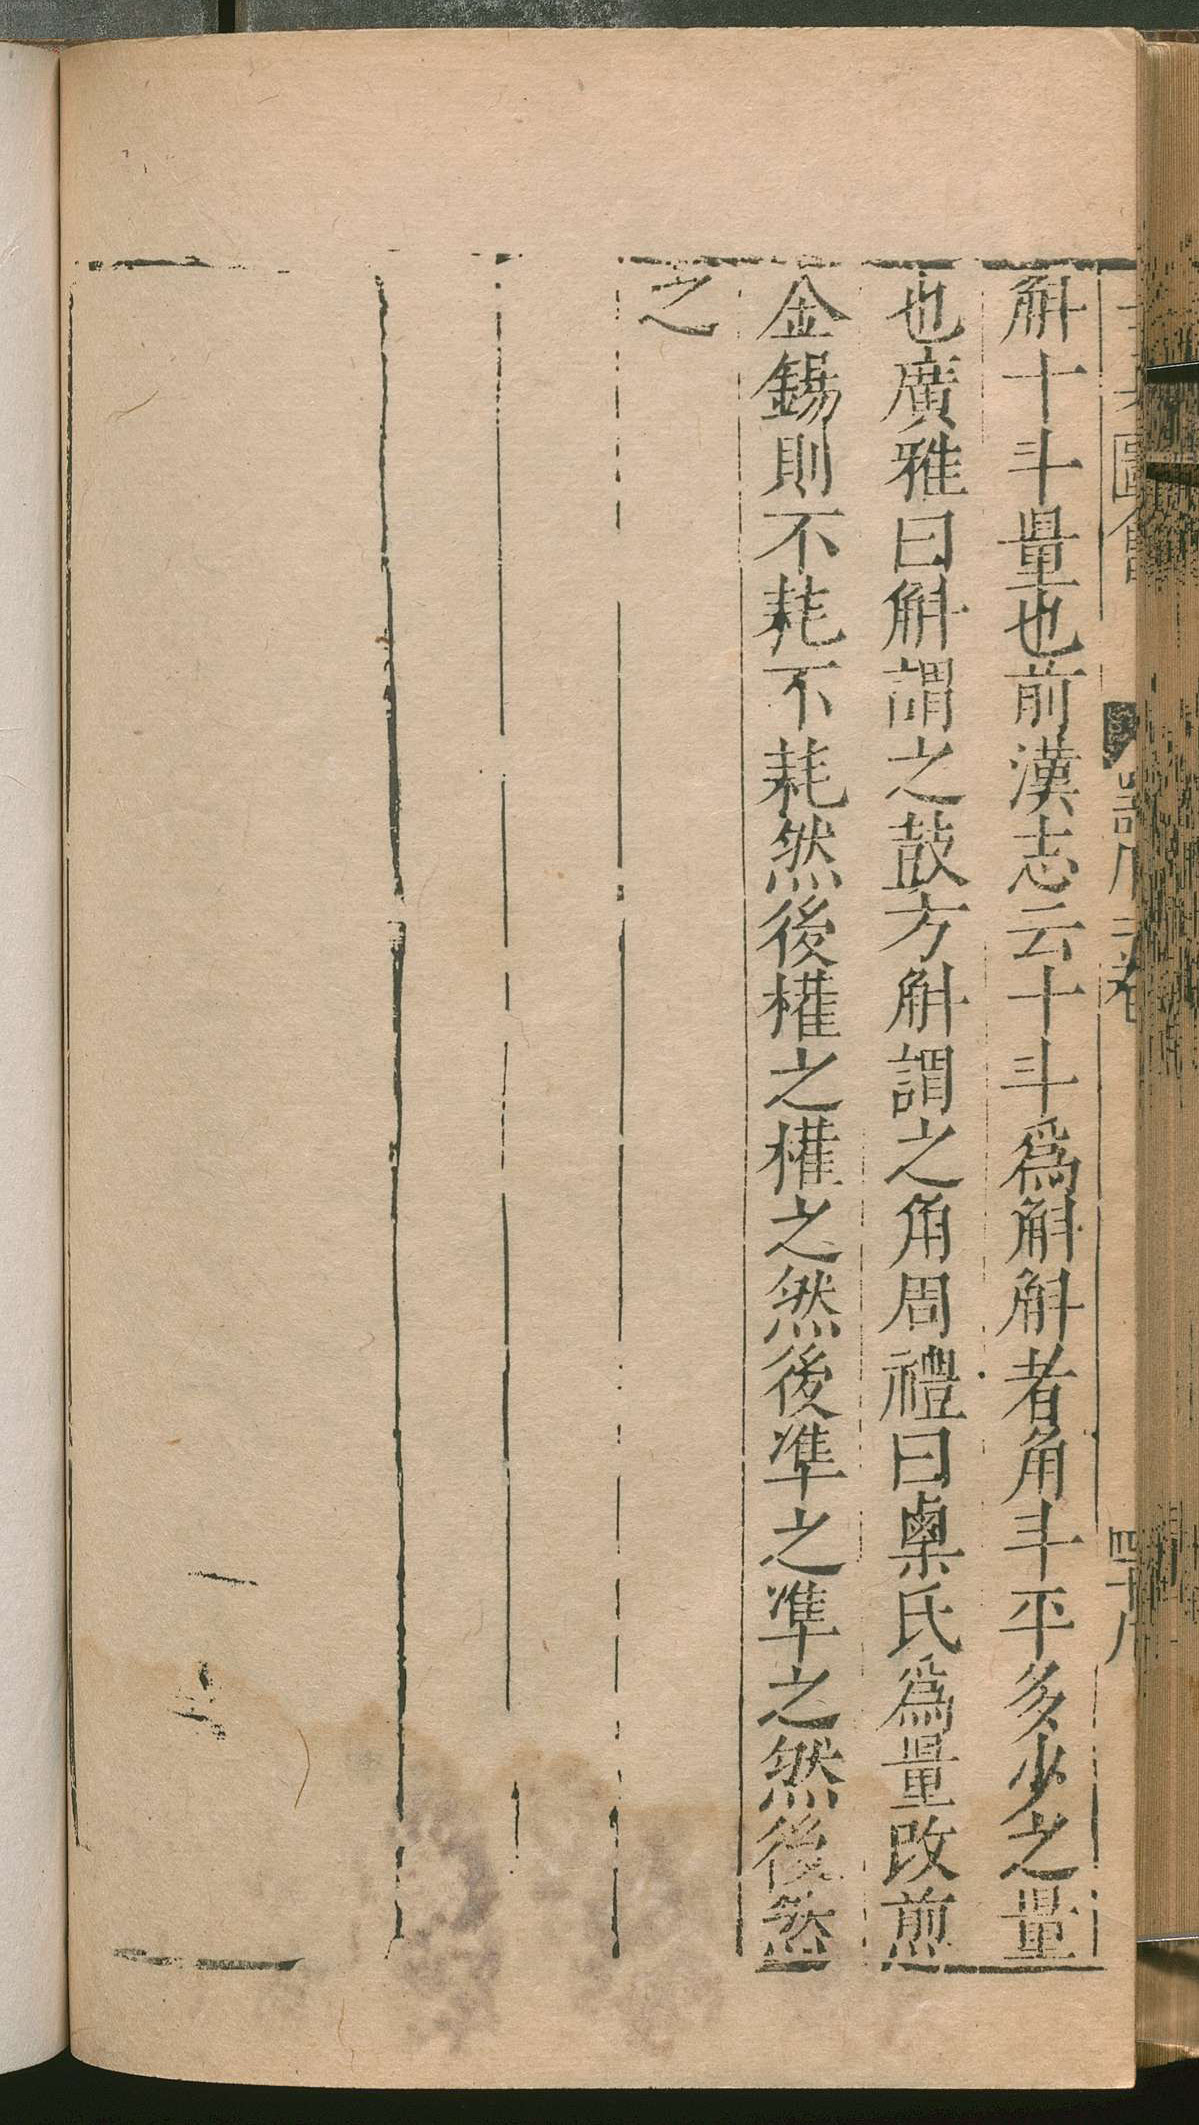 斛十斗量也前漢志云十斗為斛斛者角斗平多少之量
也廣雅曰斛謂之鼓方斛謂之角周禮曰㮚氏為量改煎
金錫則不耗不耗然後權之權之然後準之準之然後然
之